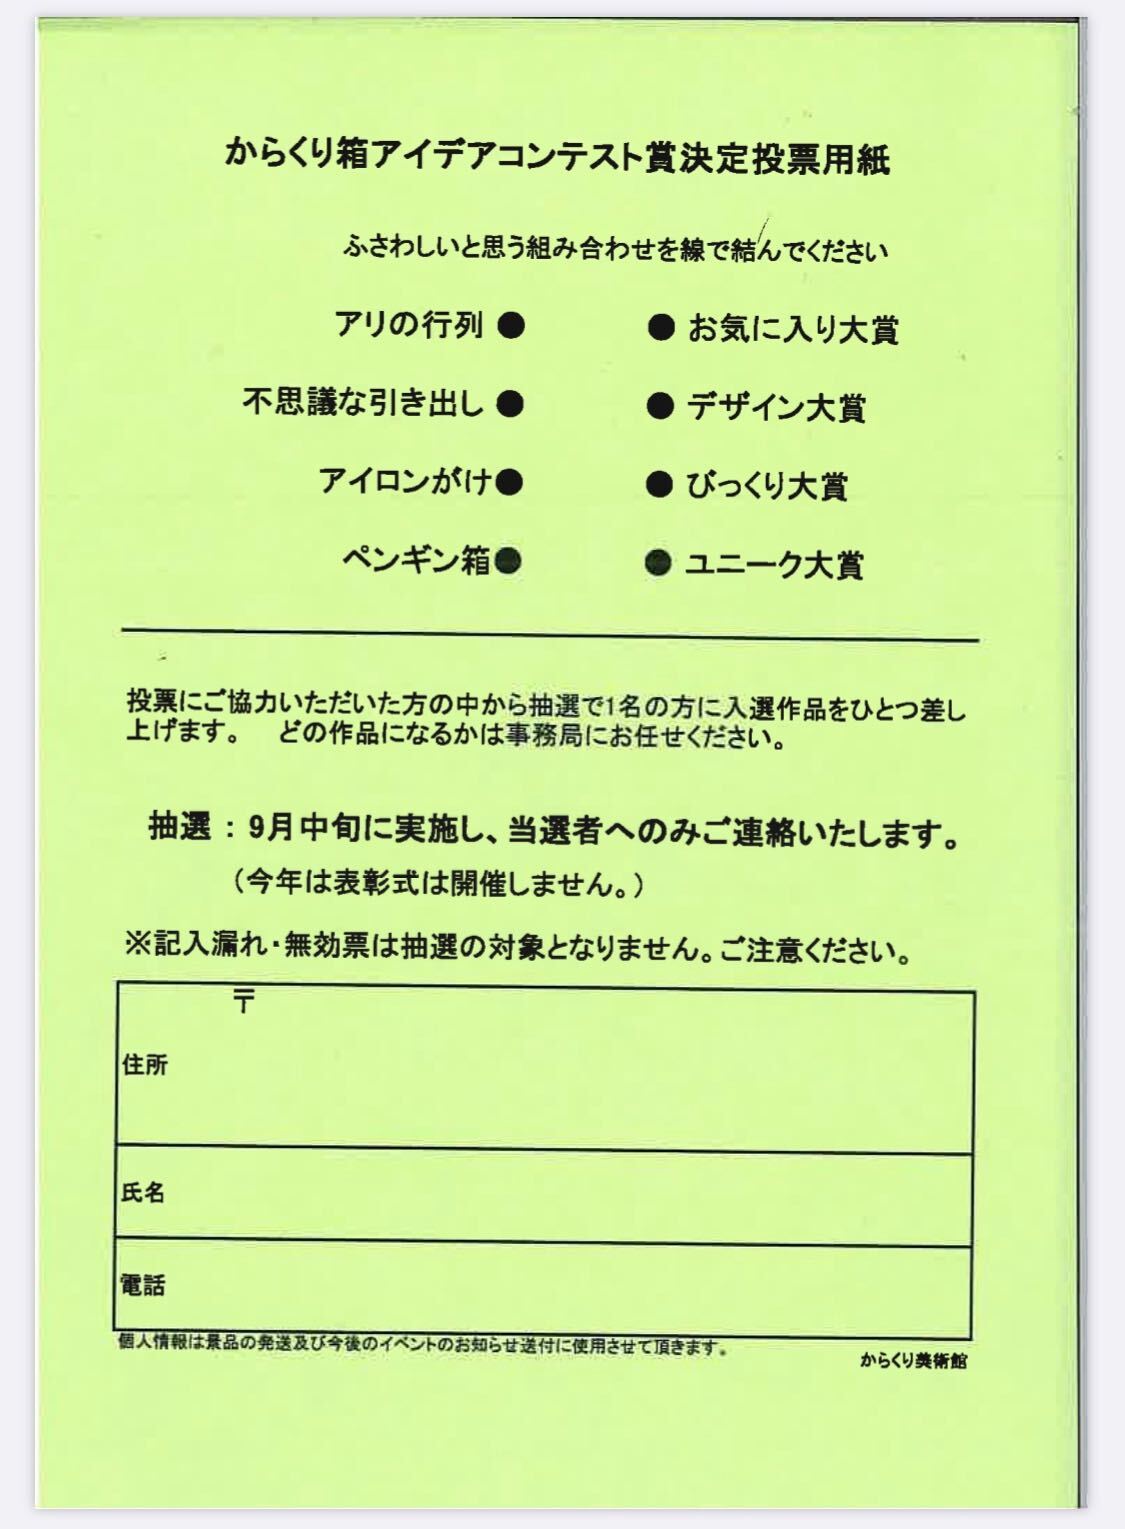 からくり箱アイデアコンテスト賞決定投票用紙
ふさわしいと思う組み合わせを線で結んでください
アリの行列 ● ● お気に入り大賞
不思議な引き出し ● ● デザイン大賞
アイロンがけ● ● びっくり大賞
ペンギン箱● ● ユニーク大賞
投票にご協力いただいた方の中から抽選で1名の方に入選作品をひとつ差し
上げます。　どの作品になるかは事務局にお任せください。
抽選：9月中旬に実施し、当選者へのみご連絡いたします。
（今年は表彰式は開催しません。）
※記入漏れ・無効票は抽選の対象となりません。ご注意ください。
〒
住所
氏名
電話
個人情報は景品の発送及び今後のイベントのお知らせ送付に使用させて頂きます。
からくり美術館